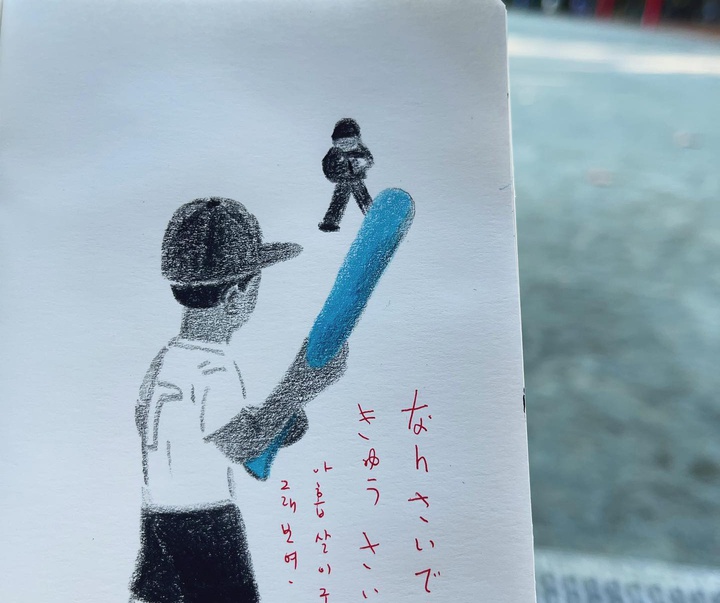 なんさいで
きゅうさい
아홉살이구
그래보여.